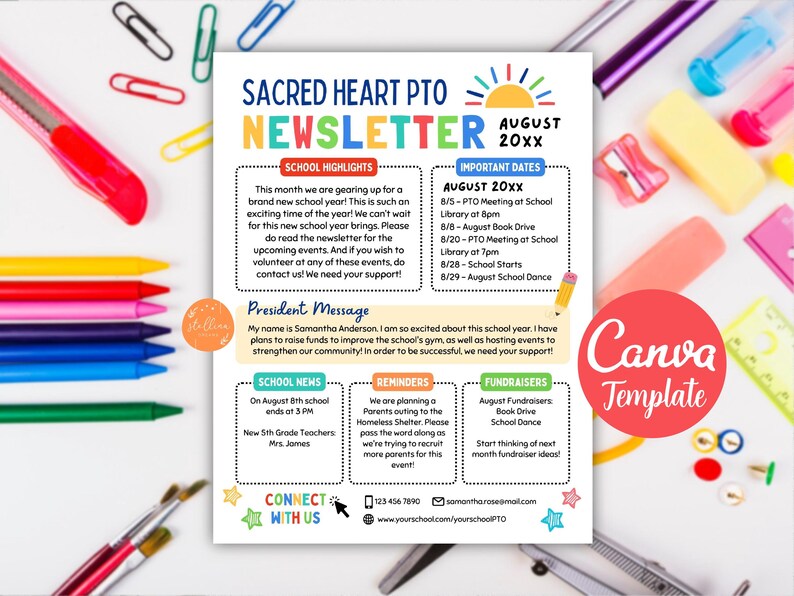 SACRED HEART PTO
NEWSLETTER
AUGUST
20XX
SCHOOL HIGHLIGHTS
This month we are gearing up for a
brand new school year! This is such an
exciting time of the year! We can't wait
for this new school year brings. Please
do read the newsletter for the
upcoming events. And if you wish to
volunteer at any of these events, do
contact us! We need your support!
IMPORTANT DATES
AUGUST 20XX
8/5 - PTO Meeting at School
Library at 8pm
8/8 - August Book Drive
8/20 - PTO Meeting at School
Library at 7pm
8/28 - School Starts
8/29 - August School Dance
stellina
President Message
My name is Samantha Anderson. I am so excited about this school year. I have
plans to raise funds to improve the school's gym, as well as hosting events to
strengthen our community! In order to be successful, we need your support!
Canva
Template
SCHOOL NEWS
On August 8th school
ends at 3 PM
New 5th Grade Teachers:
Mrs. James
REMINDERS
We are planning a
Parents outing to the
Homeless Shelter. Please
pass the word along as
we're trying to recruit
more parents for this
event!
FUNDRAISERS
August Fundraisers:
Book Drive
School Dance
Start thinking of next
month fundraiser ideas!
CONNECT
WITH US
123 456 7890
samantha.rose@mail.com
www.yourschool.com/yourschoolPTO